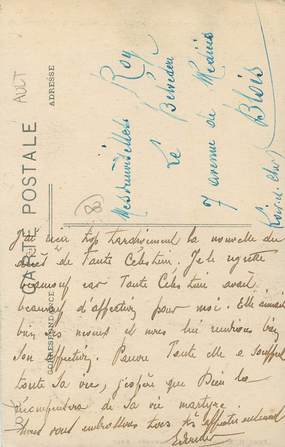 AULT
CARTE POSTALE
CORRESPONDANCE
ADRESSE
Mesdemoiselles Roy
Le Belvédère
7 avenue de Médicis
Blois
Loir-et-Cher
J'ai trop tardivement la nouvelle du
décès de Tante Célestine. Je la regrette
beaucoup car Tante Célestine avait
beaucoup d'affection pour moi. Elle aimait
bien ses nièces et nous lui rendions bien
son affection. Pauvre Tante elle a souffert
toute sa vie, j'espère que Dieu la
récompensera de sa vie martyre.
Nous vous embrassons tous très affectueusement